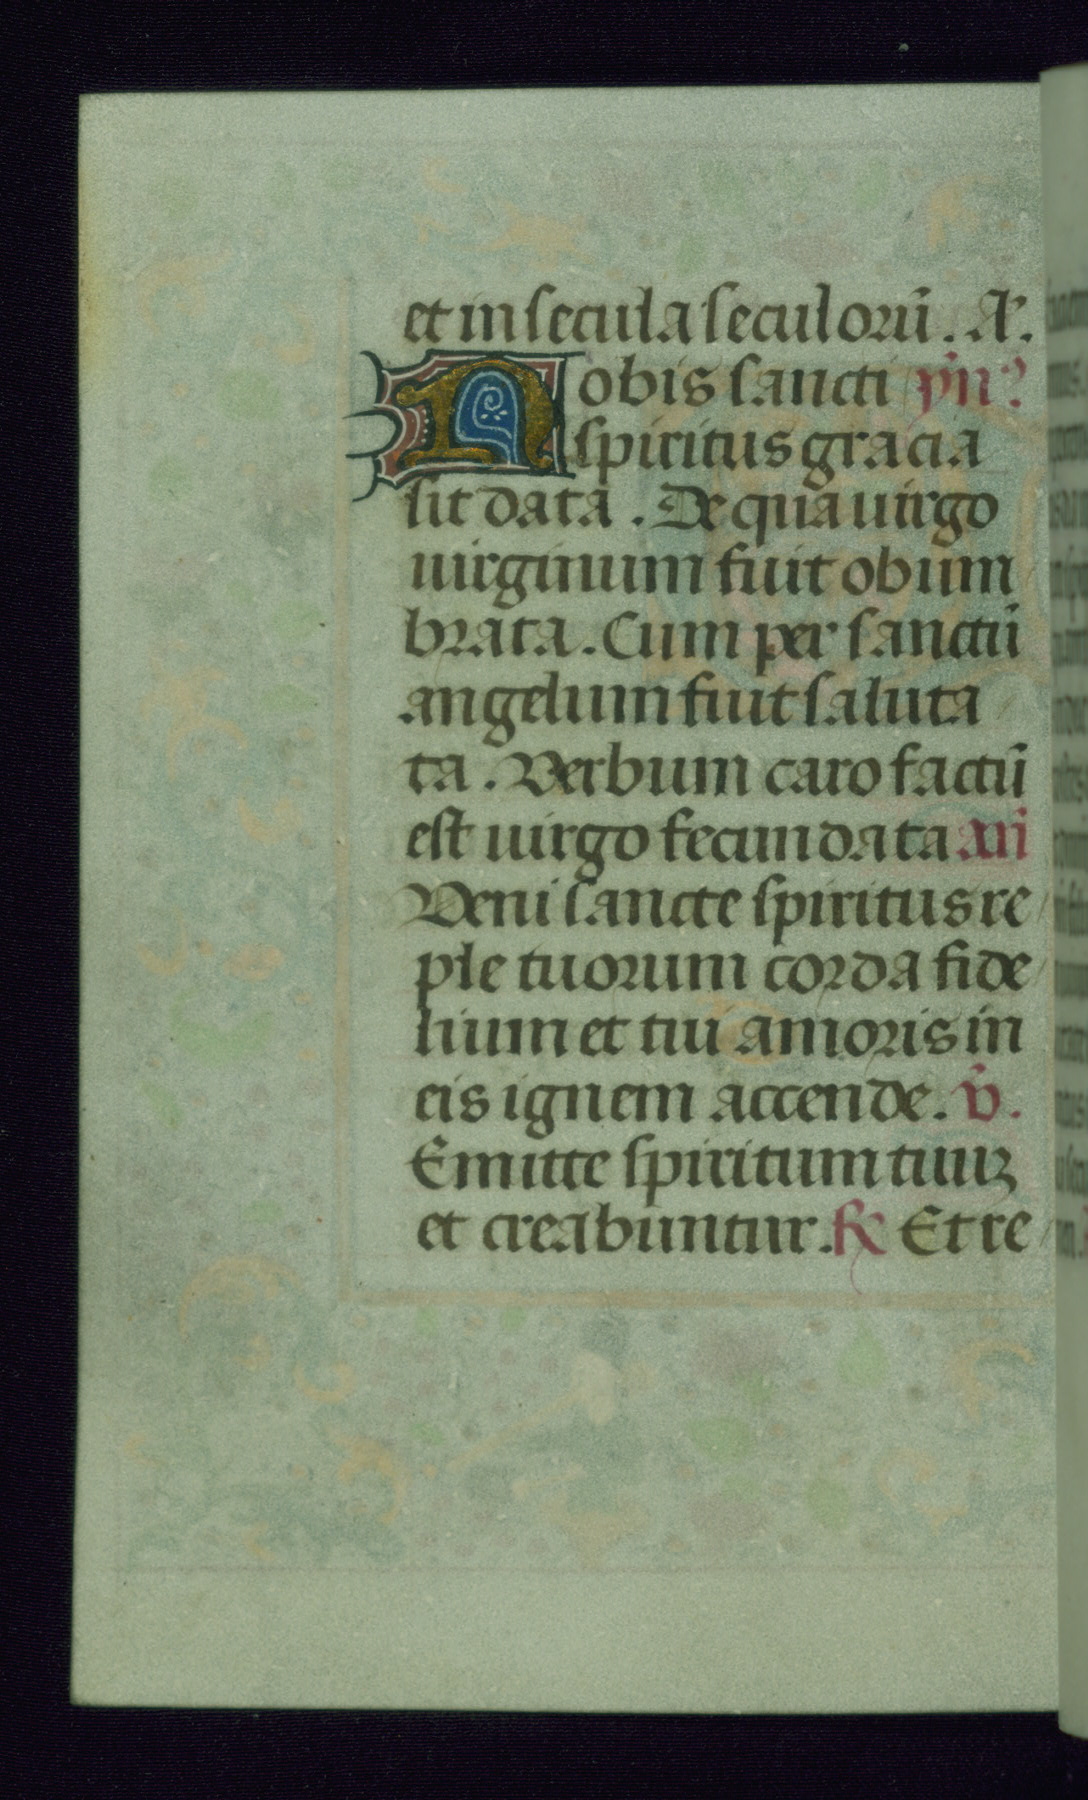 et in secula seculorū. Aͫ.
Nobis sancti ẏn᷑
spiritus gracia
sit data. De qua uirgo
uirginum fuit obum
brata. Cum per sanctū
angelum fuit saluta
ta. Verbum caro factū
est uirgo fecundata añ
Veni sancte spiritus re
ple tuorum corda fide
lium et tui amoris in
eis ignem accende. v̄.
Emitte spiritum tuuꝫ
et creabuntur. ℟ Et re